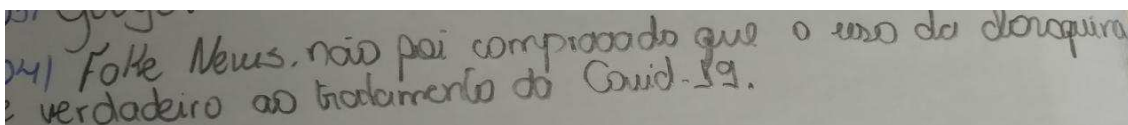 04) Fake News. não foi comprovado que o uso da cloroquina
é verdadeiro ao tratamento da Covid-19.